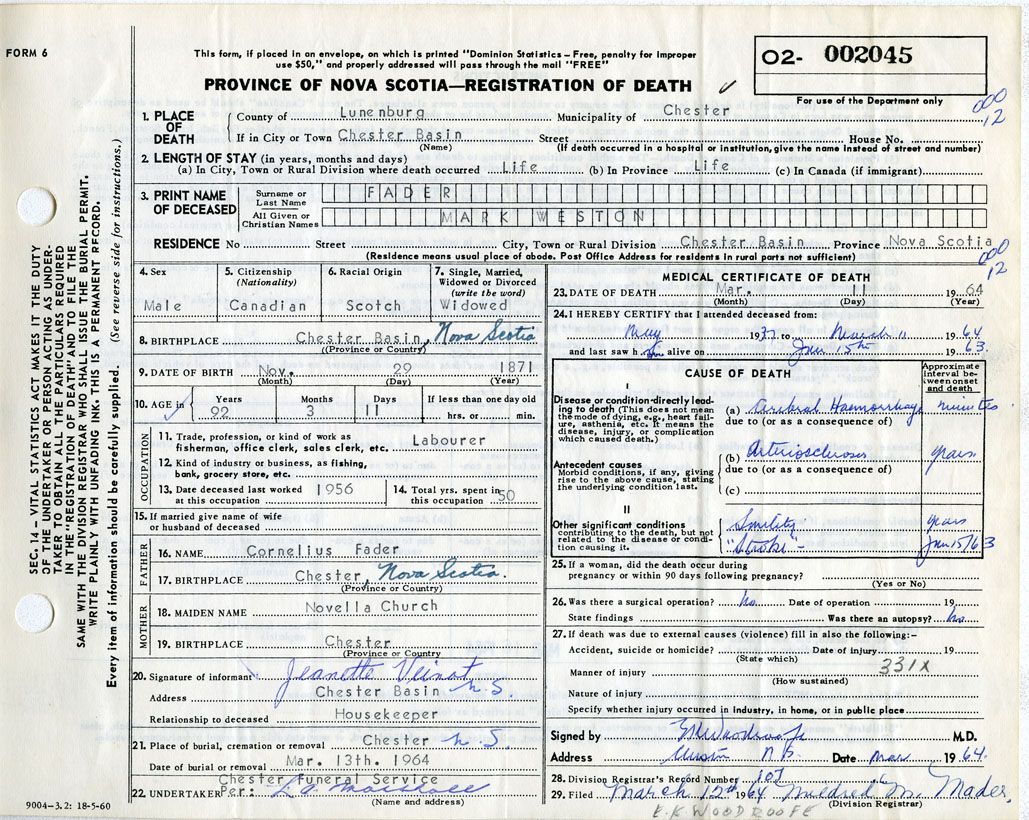 FORM 6
This form, if placed in an envelope, on which is printed "Dominion Statistics – Free, penalty for improper
use $50," and properly addressed will pass through the mail "FREE"
PROVINCE OF NOVA SCOTIA—REGISTRATION OF DEATH
02- 002045
For use of the Department only
000
12
1. PLACE OF DEATH
County of Lunenburg Municipality of Chester
If in City or Town Chester Basin Street House No.
(Name) (If death occurred in a hospital or institution, give the name instead of street and number)
2. LENGTH OF STAY (in years, months and days)
(a) In City, Town or Rural Division where death occurred Life (b) In Province Life (c) In Canada (if immigrant)
3. PRINT NAME OF DECEASED
Surname or Last Name FADER
All Given or Christian Names MARK WESTON
RESIDENCE No Street City, Town or Rural Division Chester Basin Province Nova Scotia
(Residence means usual place of abode. Post Office Address for residents in rural parts not sufficient)
000
12
4. Sex Male
5. Citizenship (Nationality) Canadian
6. Racial Origin Scotch
7. Single, Married, Widowed or Divorced (write the word) Widowed
8. BIRTHPLACE Chester Basin, Nova Scotia
(Province or Country)
9. DATE OF BIRTH Nov. 29 1871
(Month) (Day) (Year)
10. AGE in Years Months Days If less than one day old
92 3 11 hrs. or min.
OCCUPATION
11. Trade, profession, or kind of work as
fisherman, office clerk, sales clerk, etc. Labourer
12. Kind of industry or business, as fishing,
bank, grocery store, etc.
13. Date deceased last worked at this occupation 1956
14. Total yrs. spent in this occupation 50
15. If married give name of wife
or husband of deceased
FATHER
16. NAME Cornelius Fader
17. BIRTHPLACE Chester, Nova Scotia.
(Province or Country)
MOTHER
18. MAIDEN NAME Novella Church
19. BIRTHPLACE Chester
(Province or Country
20. Signature of informant Jeanette Veinot
Address Chester Basin N.S.
Relationship to deceased Housekeeper
21. Place of burial, cremation or removal Chester N.S.
Date of burial or removal Mar. 13th. 1964
Chester Funeral Service
22. UNDERTAKER Per:
(Name and address)
9004-3.2: 18-5-60
MEDICAL CERTIFICATE OF DEATH
23. DATE OF DEATH Mar. 11 1964
(Month) (Day) (Year)
24. I HEREBY CERTIFY that I attended deceased from:
May 1937 to March 11 1964
and last saw h alive on Jan 15th 1963.
CAUSE OF DEATH
Approximate interval between onset and death
I
Disease or condition directly leading to death (This does not mean the mode of dying, e.g., heart failure, asthenia, etc. It means the disease, injury, or complication which caused death.)
(a) Cerebral Haemorrhage minutes
due to (or as a consequence of)
Antecedent causes
Morbid conditions, if any, giving rise to the above cause, stating the underlying condition last.
(b) Arteriosclerosis years
due to (or as a consequence of)
(c)
II
Other significant conditions
contributing to the death, but not related to the disease or condition causing it.
Senility years
"Stroke" – Jan 15/63
25. If a woman, did the death occur during
pregnancy or within 90 days following pregnancy?
(Yes or No)
26. Was there a surgical operation? No Date of operation 19
State findings Was there an autopsy? No
27. If death was due to external causes (violence) fill in also the following:–
Accident, suicide or homicide? Date of injury 19
(State which)
Manner of injury 331X
(How sustained)
Nature of injury
Specify whether injury occurred in industry, in home, or in public place
Signed by M.D.
Address Date Mar 1964.
28. Division Registrar's Record Number 107
29. Filed March 12th 1964 Mildred M. Mader.
(Division Registrar)
E.K WOODROOFE
SEC. 14 – VITAL STATISTICS ACT MAKES IT THE DUTY
OF THE UNDERTAKER OR PERSON ACTING AS UNDER-
TAKER TO OBTAIN ALL THE PARTICULARS REQUIRED
IN THE "REGISTRATION OF DEATH" AND TO FILE THE
SAME WITH THE DIVISION REGISTRAR WHO SHALL ISSUE THE BURIAL PERMIT.
WRITE PLAINLY WITH UNFADING INK. THIS IS A PERMANENT RECORD.
Every item of information should be carefully supplied. (See reverse side for instructions.)